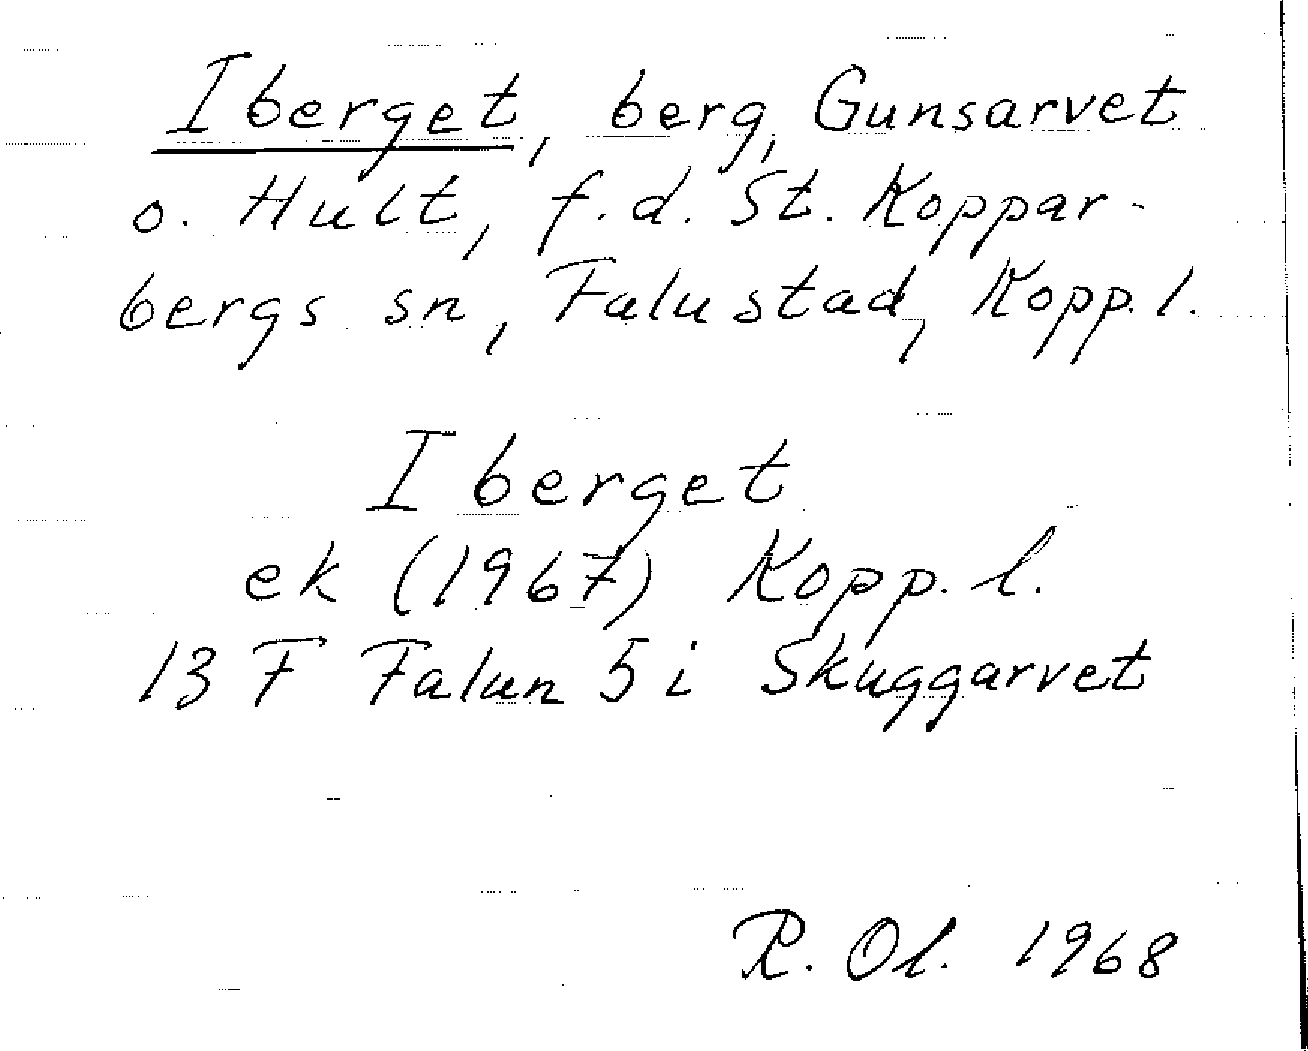 Iberget, berg, Gunsarvet
o. Hult, f.d. St. Koppar-
bergs sn, Falu stad, Kopp. l.
Iberget
ek (1967) Kopp. l.
13 F Falun 5 i Skuggarvet
R. Ol. 1968